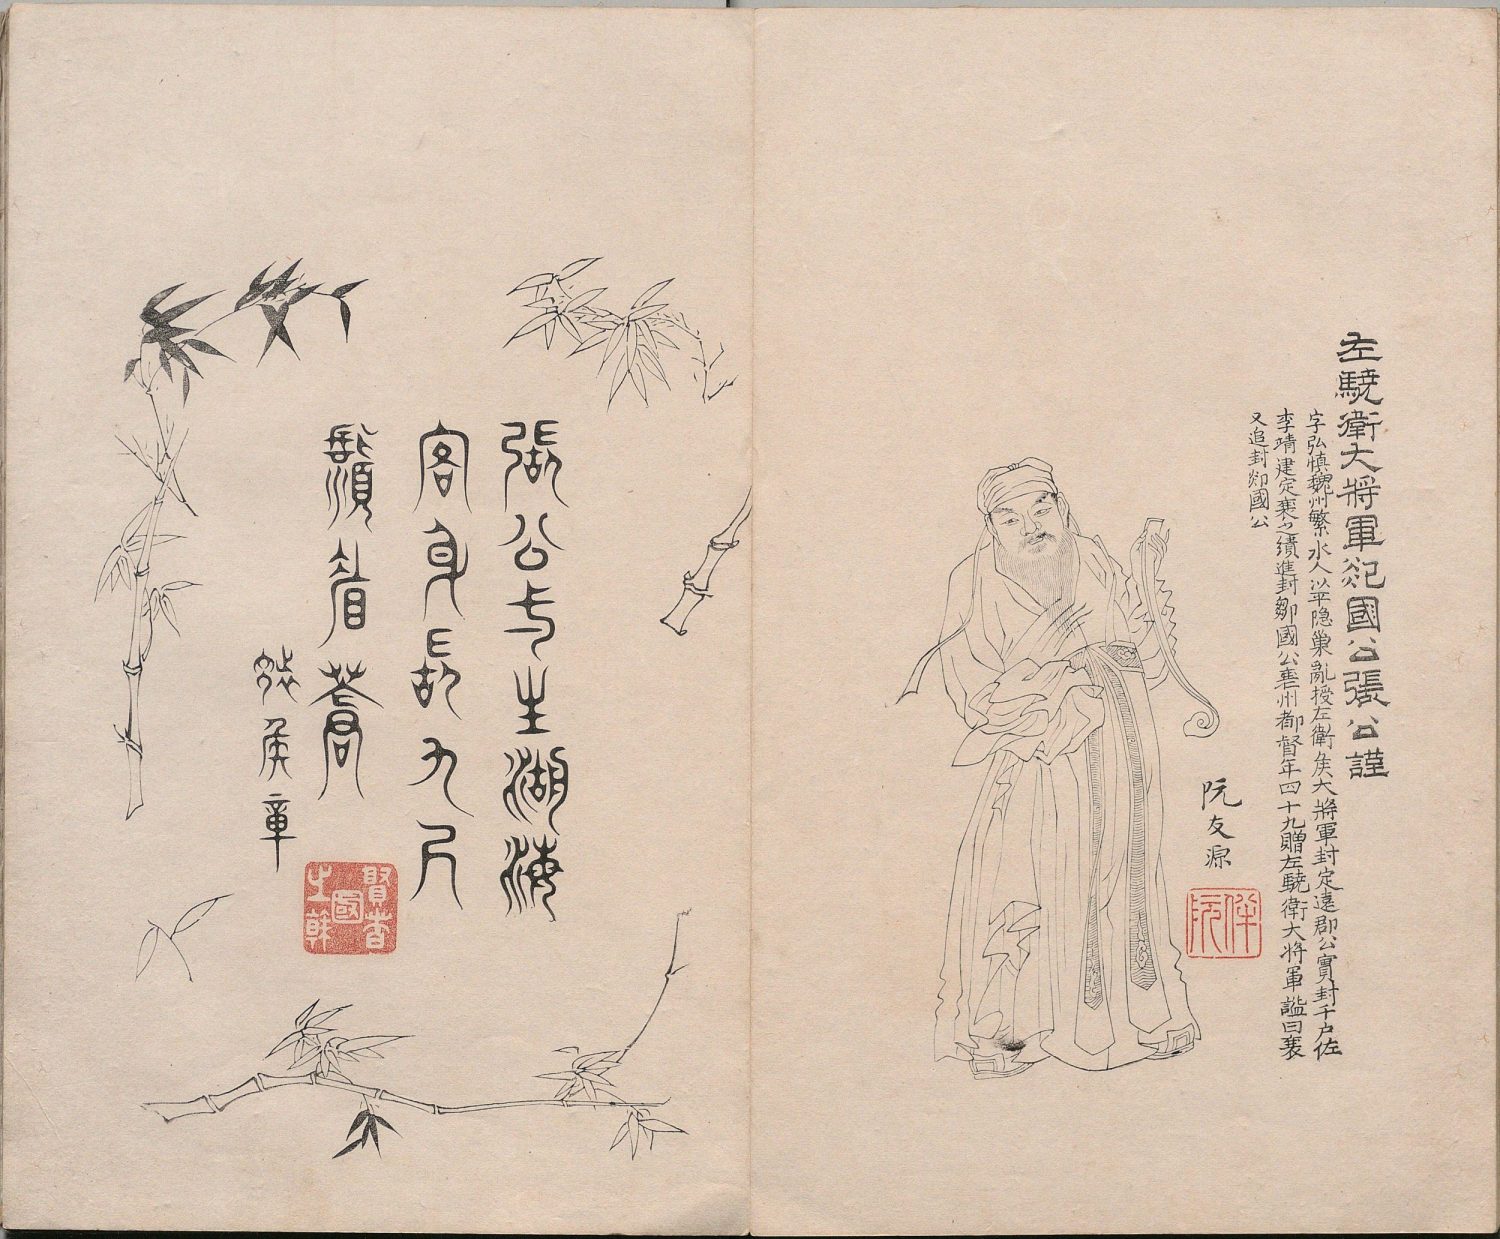 左驍衛大將軍郯國公張公謹
字弘慎魏州繁水人以平隐巢亂授左衛矦大將軍封定遠郡公實封千户佐
李靖建定襄之績進封鄒國公襄州都督年四十九贈左驍衛大將軍謚曰襄
又追封郯國公
阮友源
張公平生湖海
客身長九尺
鬚眉蒼
矦章
賢者國之幹